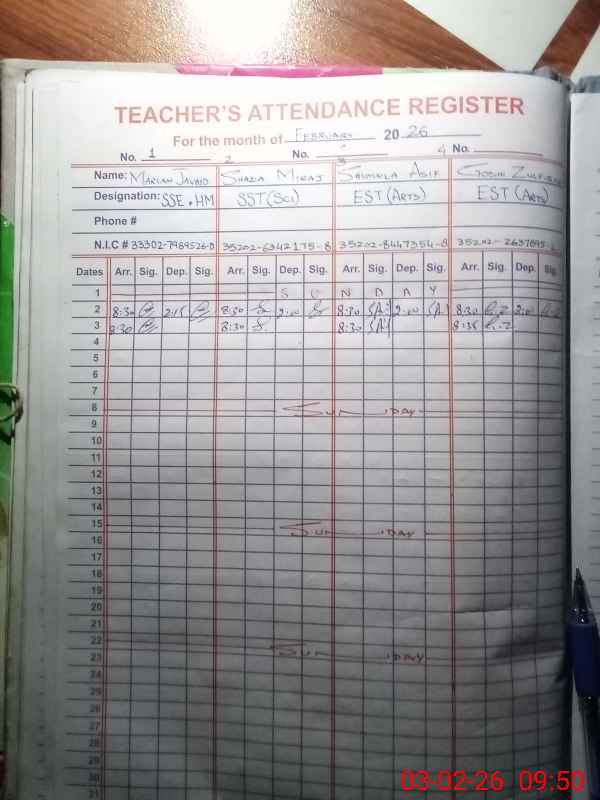 TEACHER'S ATTENDANCE REGISTER
For the month of FEBRUARY 20 26
No. 1 2 No. 3 4 No.
Name: MARIAM JAVAID SHAZIA MIRAJ SHUMAILA ASIF
Designation: SSE.HM SST(SCI) EST(ARTS) EST(ARTS)
Phone #
N.I.C # 33302-7989526-0 35202-6342175-8 35202-8447354-8 35202-
Dates Arr. Sig. Dep. Sig. Arr. Sig. Dep. Sig. Arr. Sig. Dep. Sig. Arr. Sig. Dep. Sig.
1 S U N D A Y
2 8:30 2:15 8:30 2:00 8:30 SA 2:00 SA 8:30 2:00
3 8:30 8:30 8:30 SA 8:35
4
5
6
7
8 SUN DAY
9
10
11
12
13
14
15 SUN DAY
16
17
18
19
20
21
22 SUN DAY
23
24
25
26
27
28
29
30
31
03-02-26 09:50